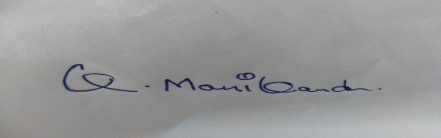 Q. Manikandn.